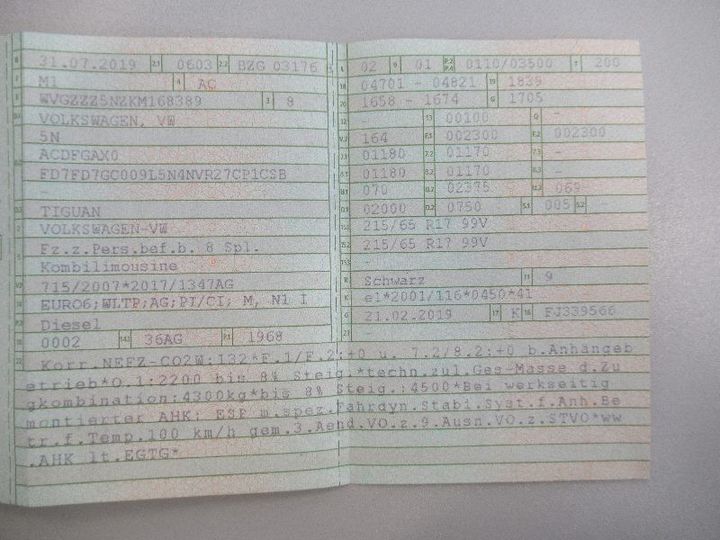 31.07.2019 2.1 0603 2.2 BZG 03176
M1 4 AC
WVGZZZ5NZKM168389 3 8
VOLKSWAGEN, VW
5N
ACDFGAX0
FD7FD7GC009L5N4NVR27CP1CSB
-
TIGUAN
VOLKSWAGEN-VW
Fz.z.Pers.bef.b. 8 Spl.
Kombilimousine
715/2007*2017/1347AG
EURO6;WLTP;AG;PI/CI; M, N1 I
Diesel
0002 14.1 36AG P.1 1968
L 02 9 01 P.2 P.4 0110/03500 T 200
18 04701 - 04821 19 1839
20 1658 - 1674 G 1705
12 - 13 00100 Q -
V.7 164 F.1 002300 F.2 002300
7.1 01180 7.2 01170 7.3 -
8.1 01180 8.2 01170 8.3 -
U.1 070 U.2 02375 U.3 069
O.1 02000 O.2 0750 S.1 005 S.2
15.1 215/65 R17 99V
15.2 215/65 R17 99V
15.3 -
R Schwarz 11 9
K e1*2001/116*0450*41
6 21.02.2019 17 K 16 FJ339566
21 -
22 Korr.NEFZ-CO2W:132*F.1/F.2:+0 u. 7.2/8.2:+0 b.Anhängeb
etrieb*O.1:2200 bis 8% Steig.*techn.zul.Ges-Masse d.Zu
gkombination:4300kg*bis 8% Steig.:4500*Bei werkseitig
montierter AHK: ESP m.spez.Fahrdyn.Stabi.Syst.f.Anh.Be
tr.f.Temp.100 km/h gem.3.Aend.VO.z.9.Ausn.VO.z.STVO*ww
.AHK lt.EGTG*